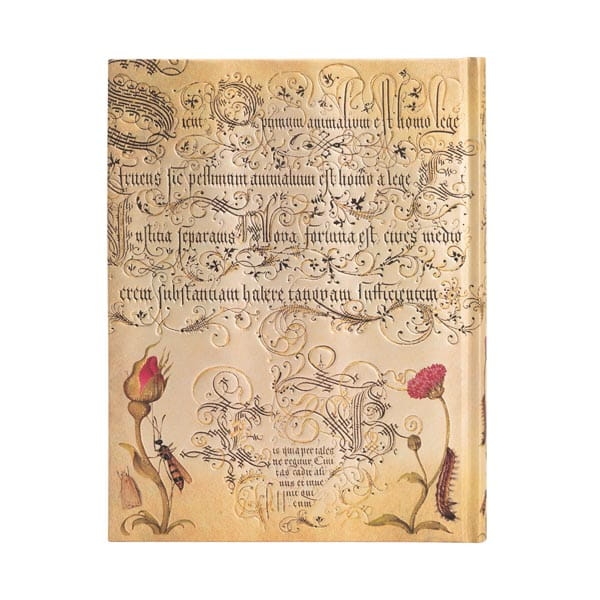 Sicut Optimum animalium est homo lege
fruens sic pessimum animalium est homo a lege et
Iustitia separatus Nova fortuna est cives medio
crem substantiam habere tanquam sufficientem
is quia per tales
ne regitur Civi
tas cadit ali
nus et inve
nit qui
cum